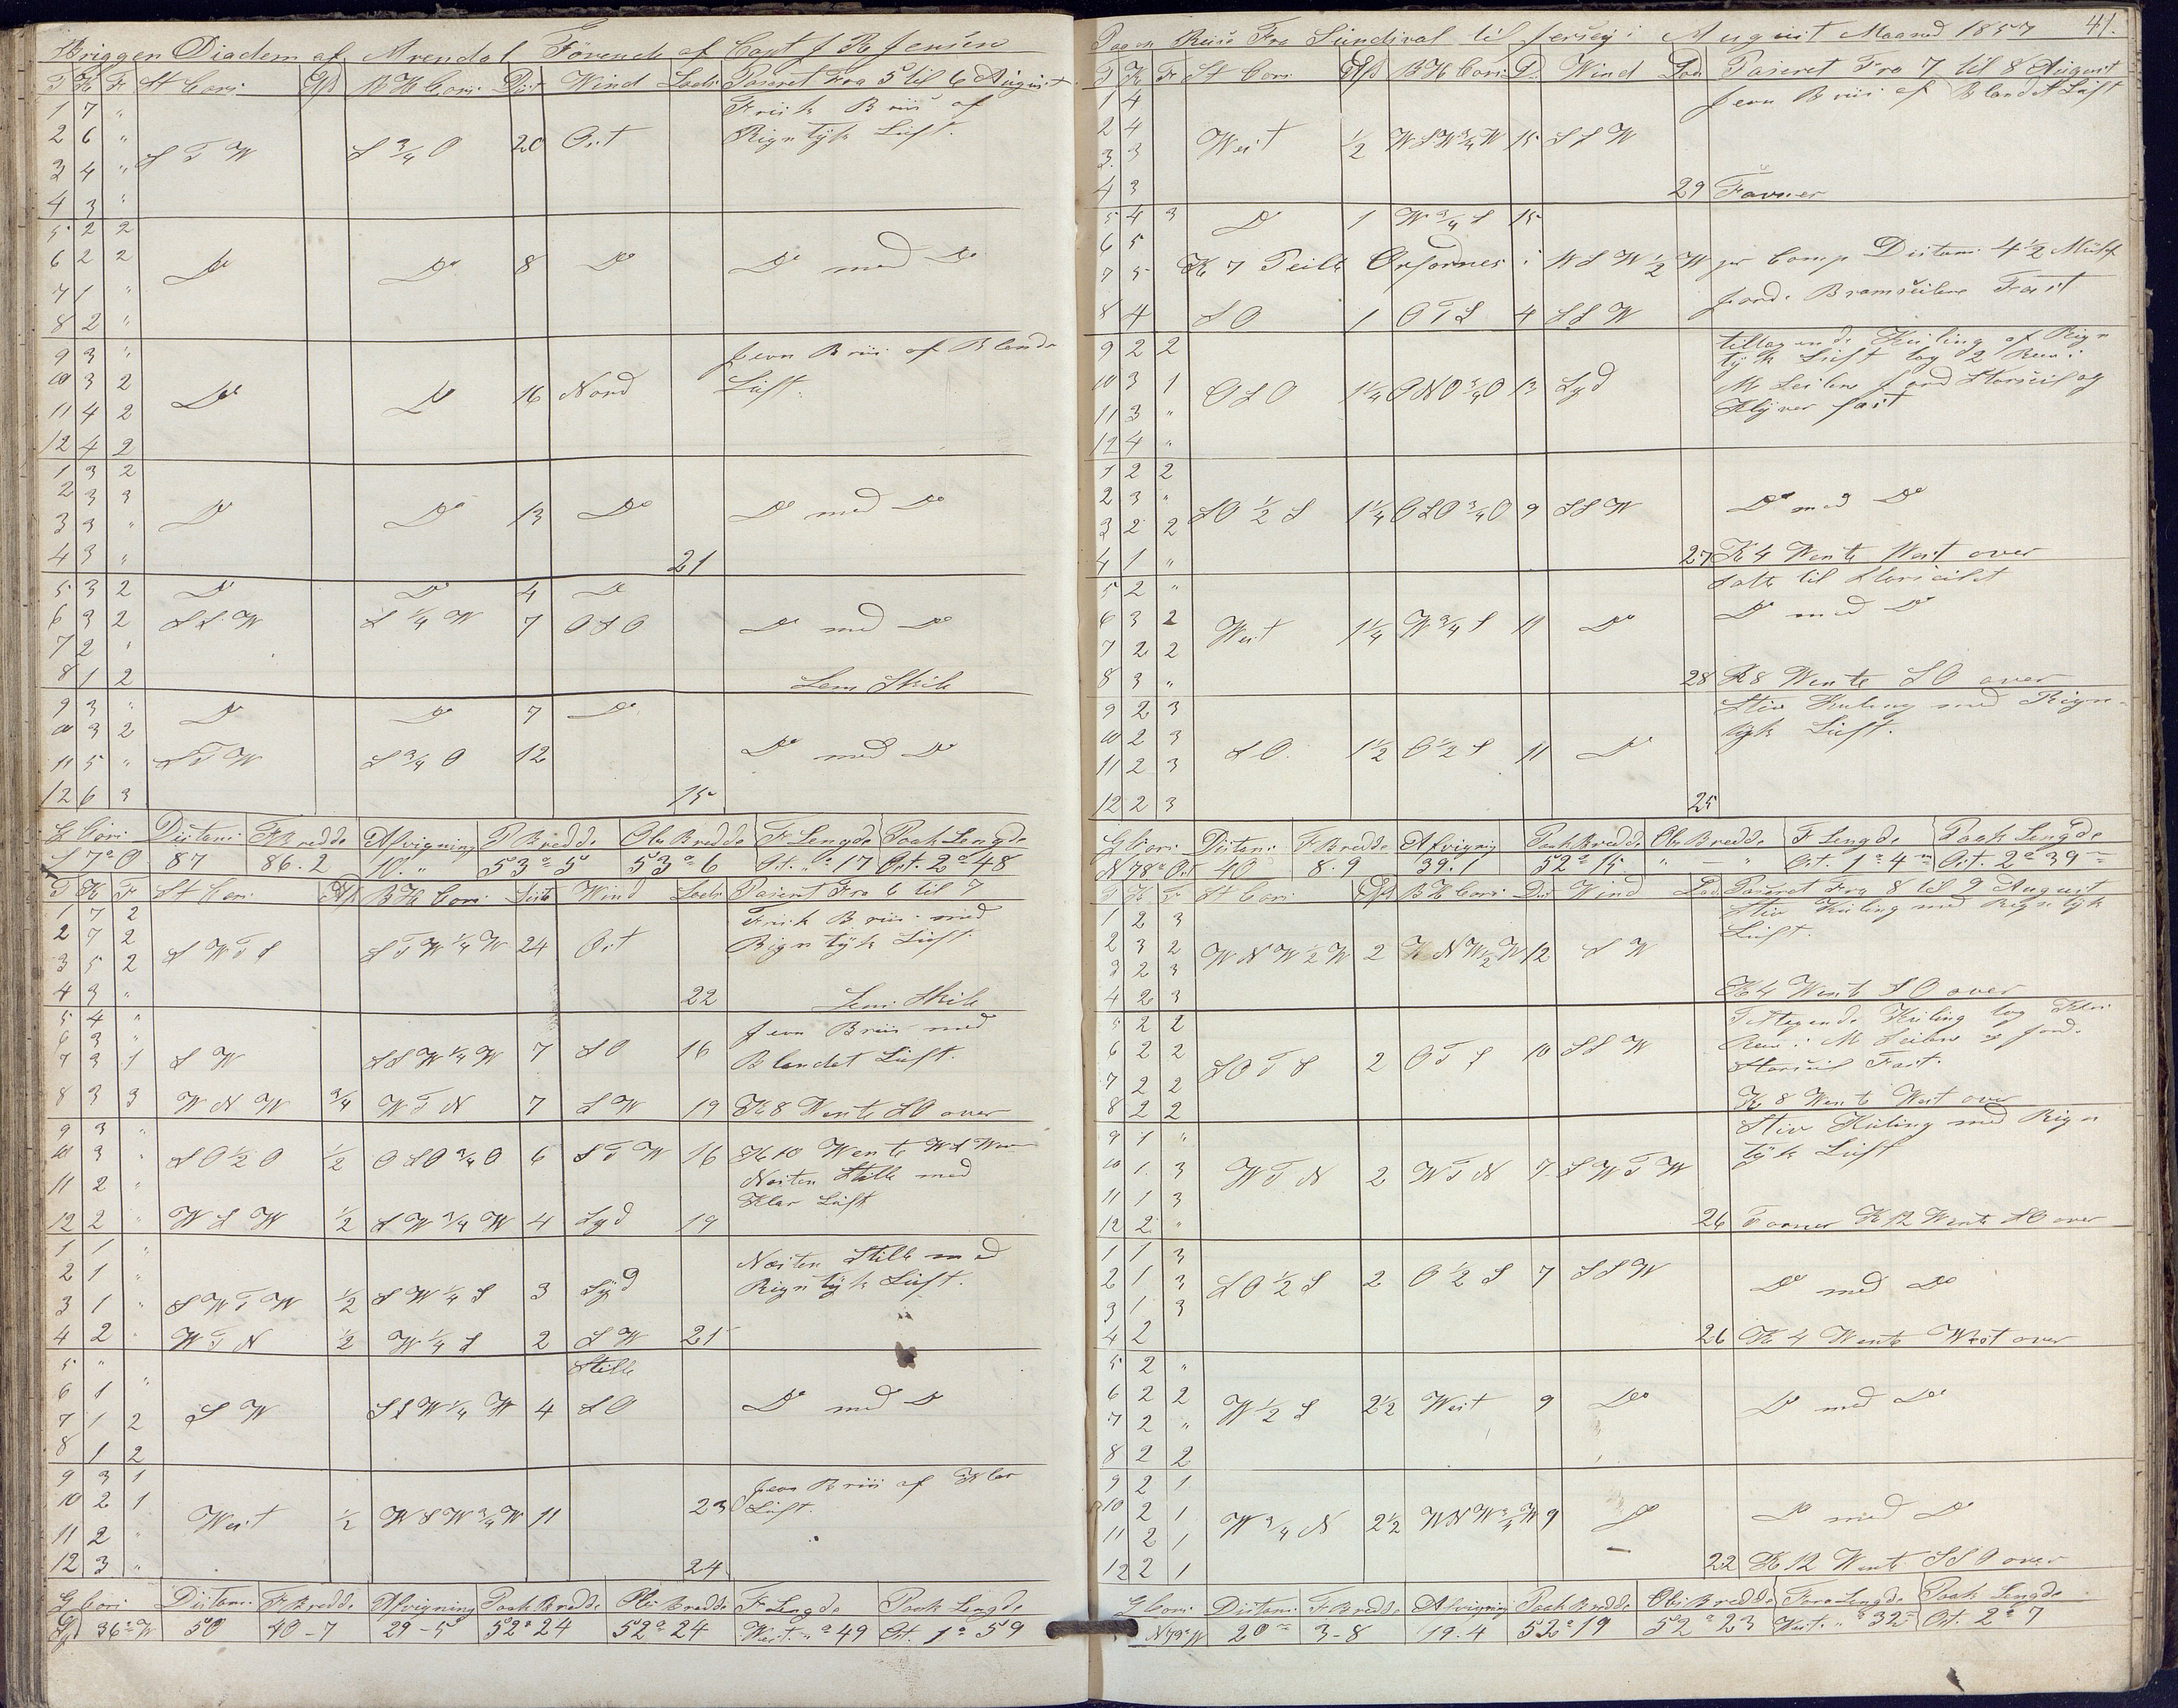 Briggen Diadem af Arendal Förende af Capt J R Jensen
T K Fr St Cors Afd B H Cors Dist Wind Lods Paseret Fra 5 til 6 August
1 7 "
2 6 " S T W S 3/4 O 20 Ost Frisk Briis af
3 4 " Rigntÿk Lüft.
4 3 "
5 2 2
6 2 2 Do Do 8 Do Do med Do
7 1 "
8 2 "
9 3 " Jevn Briis af Blande
10 3 2 Do Do 16 Nord Lüft.
11 4 2
12 4 2
1 3 2
2 3 3 Do Do 13 Do Do med Do
3 3 "
4 3 " 21
5 3 2 Do Do 4 Do
6 3 2 S S W S 1/4 W 7 O S O Do med Do
7 2 "
8 1 2 Lens Skib
9 3 " Do Do 7 Do
10 3 2
11 5 " S T W S 3/4 O 12 Do med Do
12 6 3 15
G Cors Distans F Bredde Afvigning P Bredde Obs Bredde F Lengde Paak Lengde
S 7° O 87 86.2 10. " 53° 5 53° 6 Ost. "° 17 Ost. 2° 48
T K Fr St Cors Afd B H Cors Dist Wind Lods Paseret Fra 6 til 7
1 7 2 Frisk Briis med
2 7 2 S W T S S T W 1/4 W 24 Ost Rigntÿk Lüft
3 5 2
4 3 " 22 Lens Skib
5 4 " Jevn Briis med
6 3 "
7 3 1 S W S S W 1/4 W 7 S O 16 Blandet Lüft.
8 3 3 W N W 3/4 W T N 7 S W 19 K 8 Wente S O over
9 3 "
10 3 " S O 1/2 O 1/2 O S O 3/4 O 6 S T W 16 K 10 Wente W S W
11 2 " Næsten Stille med
Klar Lüft
12 2 " W S W 1/2 S W 3/4 W 4 Syd 19
1 1 " Næsten Stille med
2 1 " Rigntÿk Lüft.
3 1 " S W T W 1/2 S W 1/4 S 3 Syd
4 2 " W T N 1/2 W 1/4 S 2 S W 21
5 " Stille
6 1 "
7 1 2 S W S S W 1/4 W 4 S O Do med Do
8 1 2
9 3 1 Jevn Briis af Klar
10 2 1 West 1/2 W S W 3/4 W 11 23 Lüft.
11 2 "
12 3 " 24
G Cors Distans F Bredde Afvigning Paak Bredde Obs Bredde F Lengde Paak Lengde
Syd 36° W 50 40-7 29-5 52° 24 52° 24 West. "° 49 Ost. 1° 59
Paa en Reise Fra Sundsval til Jersey i August Maaned 1857 41.
T K Fr St Cors Afd B H Cors D. Wind Lod Paseret Fra 7 til 8 August
1 4 Jevn Briis af Blandet Lüft
2 4 West 1/2 W S W 3/4 W 15 S S W
3 3
4 3 29 Favner
5 4 3 Do 1 W 3/4 S 15
6 5
7 5 K 7 Peilt Orfornes i W S W 1/2 W pr Comp Distans 4 1/2 Miil
8 4 S O 1 O T S 4 S S W gjord Bramseilene Fast
9 2 2 tiltagende Küling af Rign
tÿk Lüft tog 2 Reev i
10 3 1 O S O 1 1/4 O N O 3/4 O 13 Syd M Seilene gjord Storseil og
11 3 " Klÿver fast
12 4 "
1 2 2
2 3 " S O 1/2 S 1 1/4 O S O 3/4 O 9 S S W Do med Do
3 2 2
4 1 " 27 K 4 Wente West over
5 2 " satte til Storseilet
6 3 2 West 1 1/4 W 3/4 S 11 Do Do med Do
7 2 2
8 3 " 28 K 8 Wente S O over
9 2 3 Stiv Küling med Rign-
10 2 3 S O 1 1/2 O 1/2 S 11 Do tÿk Lüft.
11 2 3
12 2 3 25
G Cors Distans F Bredde Afvigning Paak Bredde Obs Bredde F Lengde Paak Lengde
N 78° Ost 40 8.9 39.1 52° 15 " — " Ost. 1° 4 Ost. 2° 39
T K Fr St Cors Afd B H Cors Dist Wind Lod Paseret Fra 8 til 9 August
1 2 3 Stiv Küling med Rign tÿk
2 3 2 W N W 1/2 W 2 W N W 1/2 W 12 S W Lüft.
3 2 3
4 2 3 K 4 Wente S O over
5 2 2 Tiltagende Küling tog Klos
6 2 2 S O T S 2 O T S 10 S S W Reev i M Seilene og gjord
7 2 2 Storseil Fast.
8 2 2 K 8 Wente West over
9 1 " Stiv Küling med Rign
10 1 3 W T N 2 W T N 7 S W T W tÿk Lüft
11 1 3
12 2 " 26 Favner K 12 Wente S O over
1 1 3
2 1 3 S O 1/2 S 2 O 1/2 S 7 S S W Do med Do
3 1 3
4 2 26 K 4 Wente West over
5 2 "
6 2 2 W 1/2 S 2 1/2 West 9 Do Do med Do
7 2 "
8 2 2
9 2 1
10 2 1 W 3/4 N 2 1/2 W N W 3/4 W 9 Do Do med Do
11 2 1
12 2 1 22 K 12 Wente S S O over
G Cors Distans F Bredde Afvigning Paak Bredde Obs Bredde Fora Lengde Paak Lengde
N 79° W 20 3-8 19.4 52° 19 52° 23 West. "° 32 Ost. 2° 7